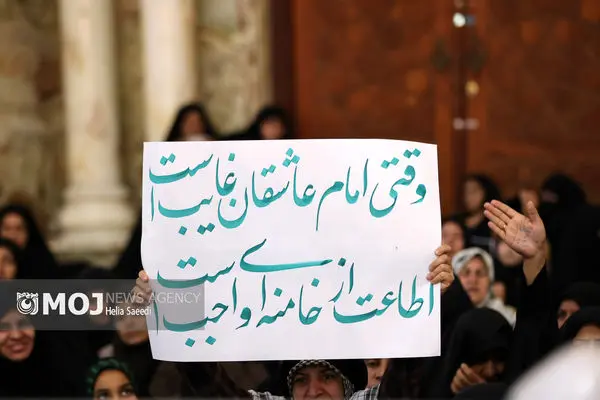 وقتی امام عاشقان غایب است
اطاعت از خامنه ای واجب است
MOJ NEWS AGENCY
Helia Saeedi